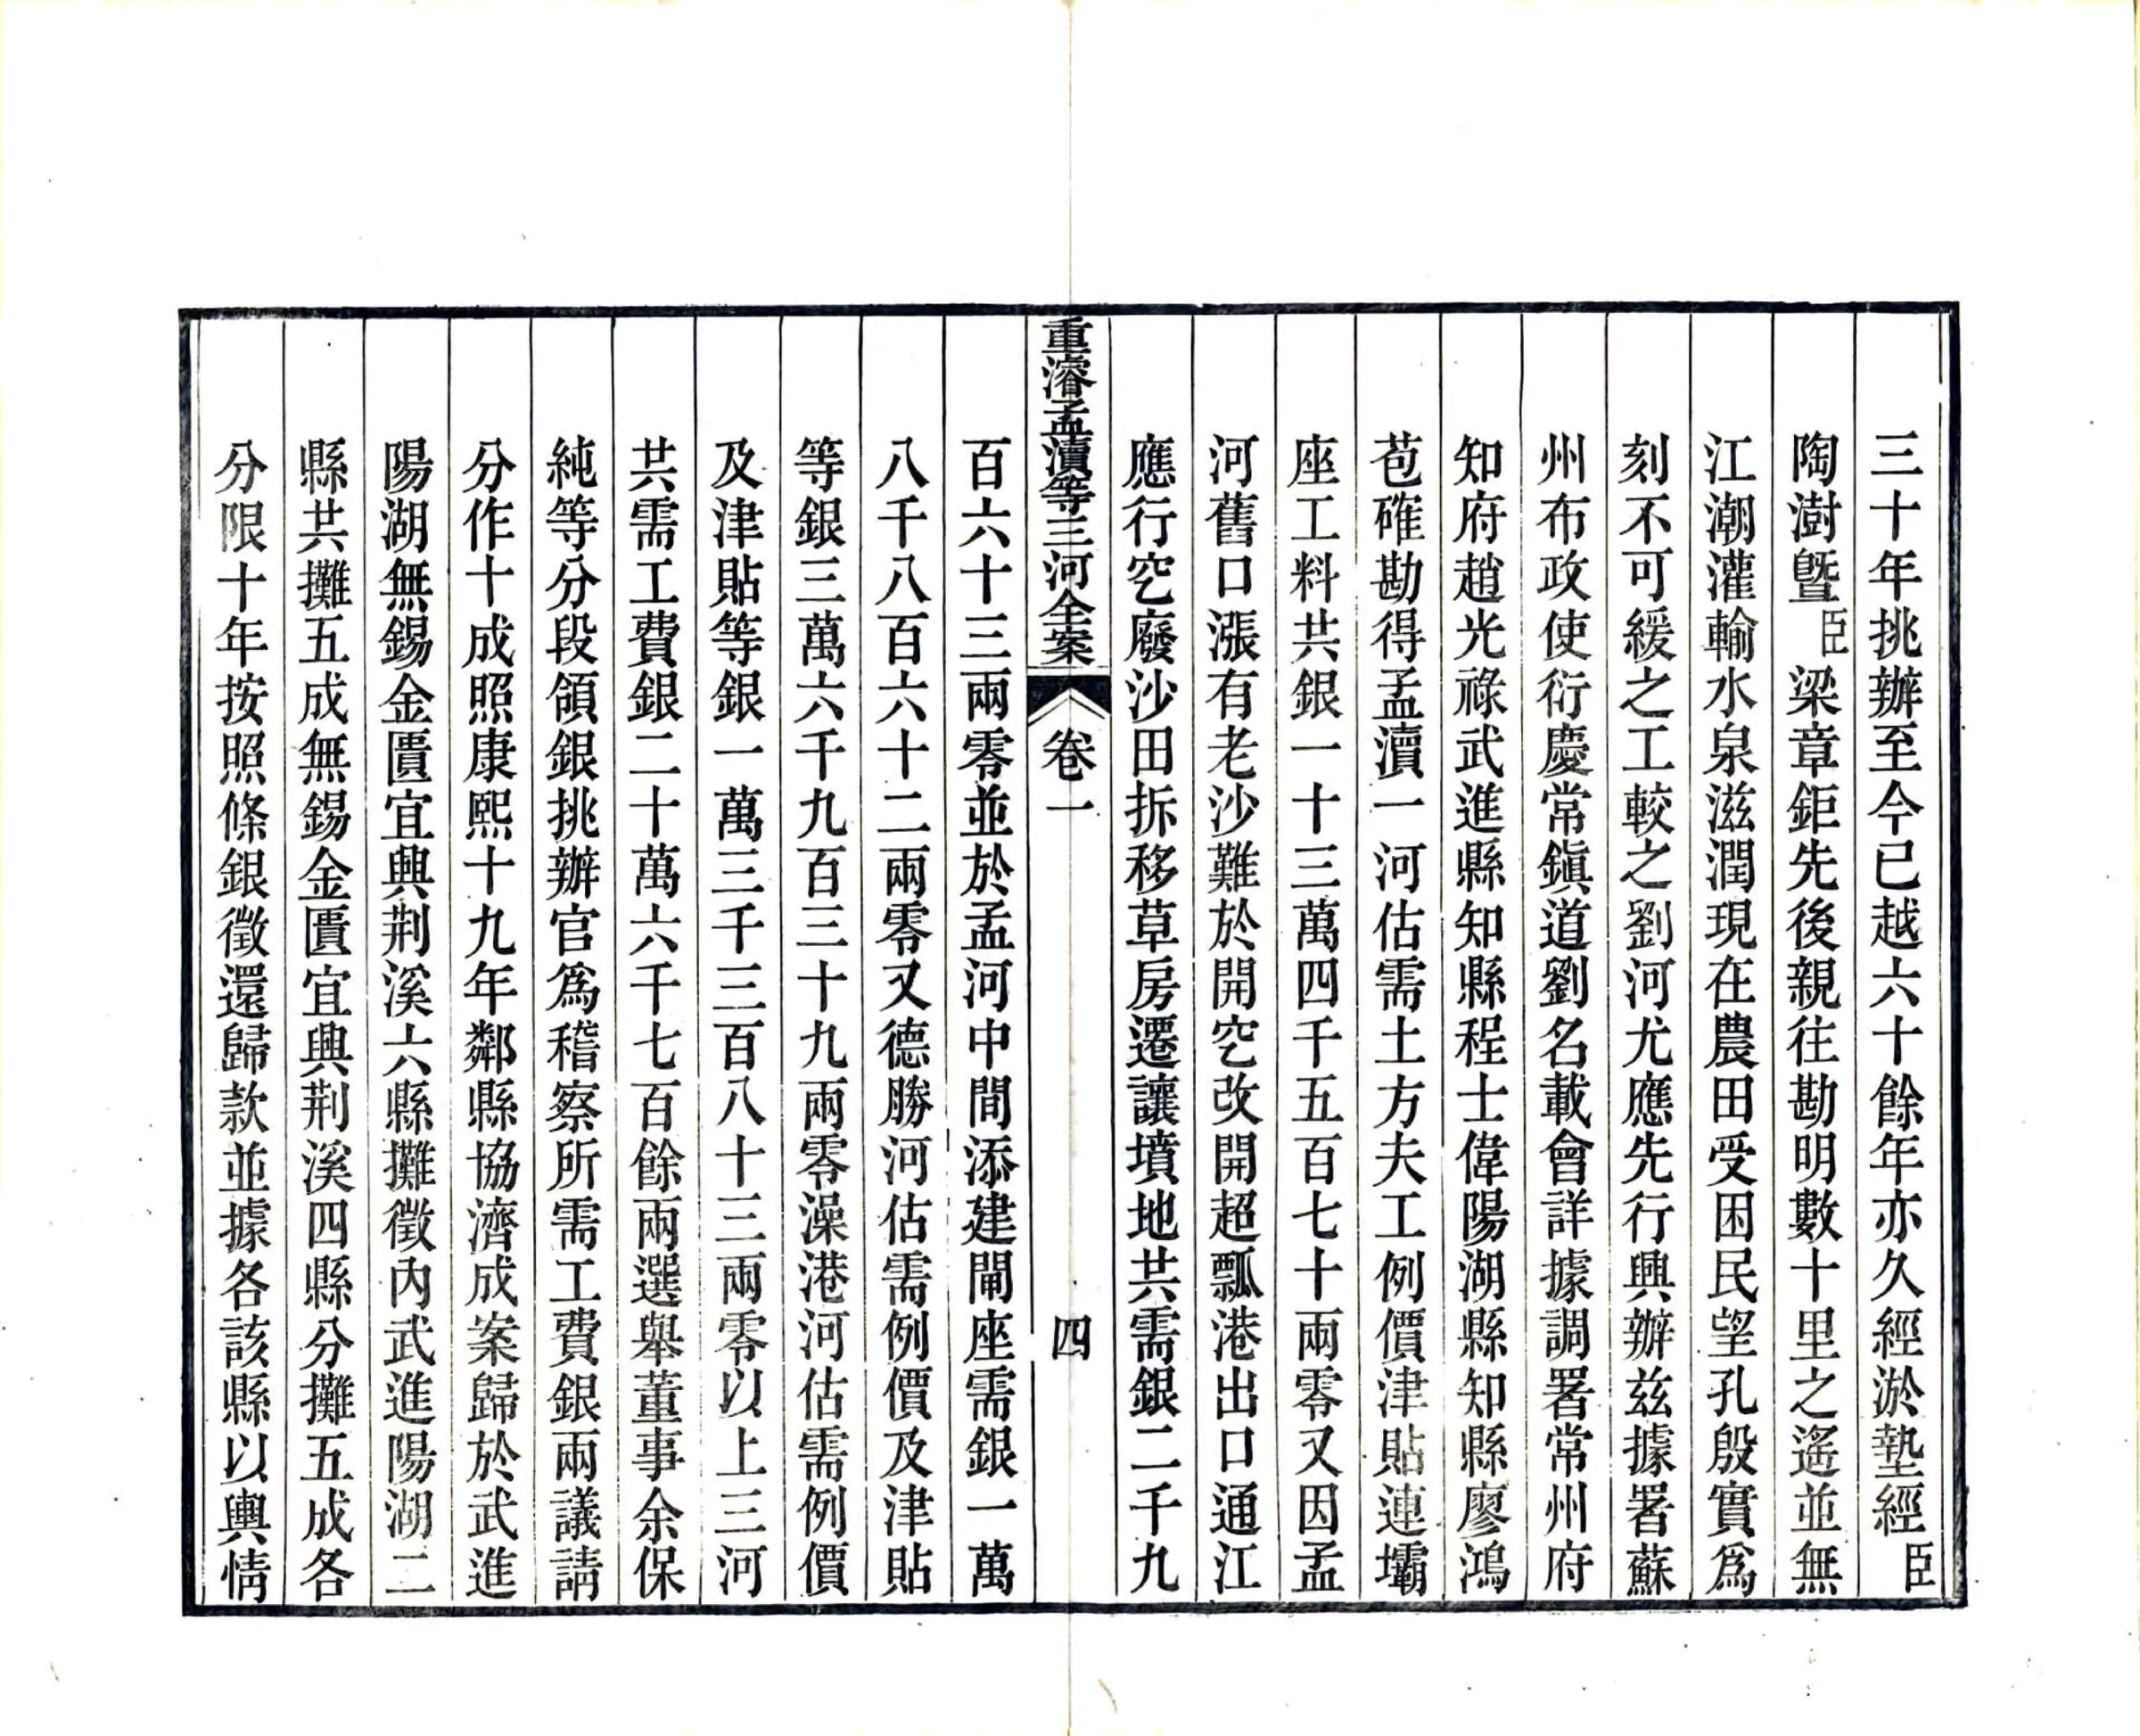 三十年挑辦至今已越六十餘年亦久經淤墊經臣
陶澍曁臣梁章鉅先後親往勘明數十里之遙並無
江潮灌輸水泉滋潤現在農田受困民望孔殷實爲
刻不可緩之工較之劉河尤應先行興辦兹據署蘇
州布政使衍慶常鎭道劉名載會詳據調署常州府
知府趙光祿武進縣知縣程士偉陽湖縣知縣廖鴻
苞確勘得孟瀆一河估需土方夫工例價津貼連壩
座工料共銀一十三萬四千五百七十兩零又因孟
河舊口漲有老沙難於開空改開超瓢港出口通江
應行空廢沙田拆移草房遷讓墳地共需銀二千九
重濬孟瀆等三河全案 卷一 四
百六十三兩零並於孟河中間添建閘座需銀一萬
八千八百六十二兩零又德勝河估需例價及津貼
等銀三萬六千九百三十九兩零澡港河估需例價
及津貼等銀一萬三千三百八十三兩零以上三河
共需工費銀二十萬六千七百餘兩選舉董事余保
純等分段領銀挑辦官爲稽察所需工費銀兩議請
分作十成照康熙十九年鄰縣協濟成案歸於武進
陽湖無錫金匱宜興荆溪六縣攤徵內武進陽湖二
縣共攤五成無錫金匱宜興荆溪四縣分攤五成各
分限十年按照條銀徵還歸款並據各該縣以輿情